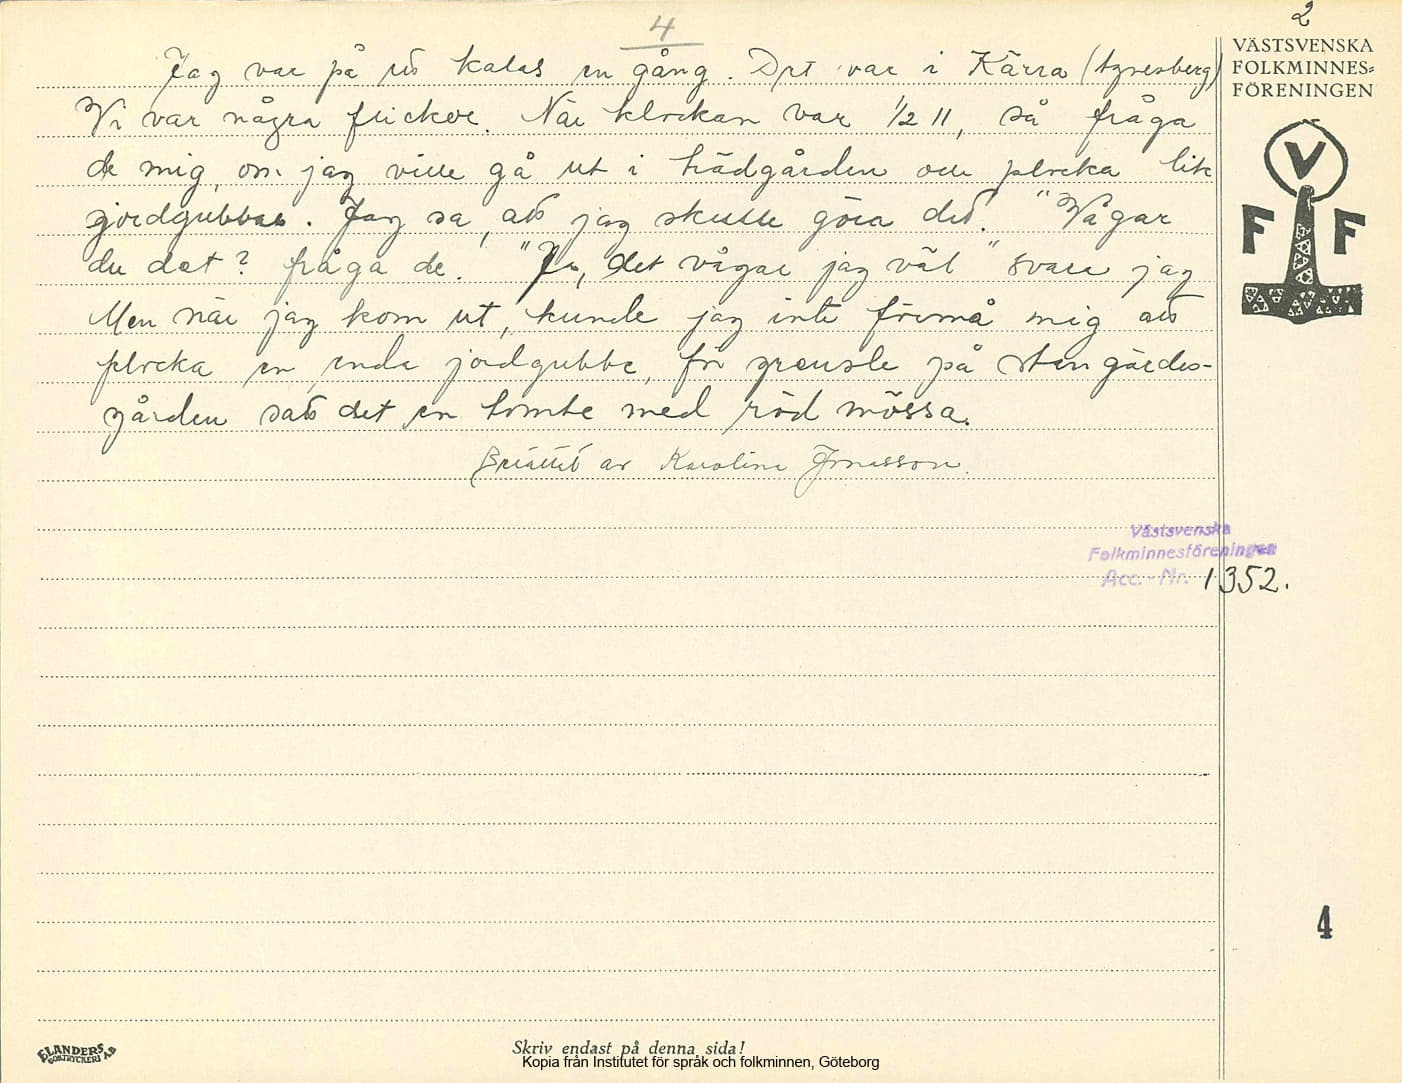 4
2
Jag var på ett kalas en gång. Det var i Kärra (Agnesberg)
Vi var några flickor. När klockan var 1/2 11, så fråga
de mig, om jag ville gå ut i trädgården och plocka lite
jordgubbar. Jag sa, att jag skulle göra det. "Vågar
du det? fråga de. "Ja, det vågar jag väl" svara jag
Men när jag kom ut, kunde jag inte förmå mig att
plocka en enda jordgubbe, för grensle på stengärdes-
gården satt det en tomte med röd mössa.
Berättat av Karolina Jonasson.
VÄSTSVENSKA
FOLKMINNES=
FÖRENINGEN
V
F F
Västsvenska
Folkminnesföreningen
Acc. - Nr. 1352.
4
ELANDERS
BOKTRYCKERI AB
Skriv endast på denna sida!
Kopia från Institutet för språk och folkminnen, Göteborg